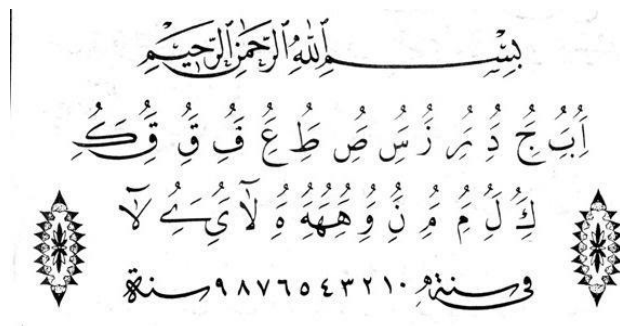 بِسْمِ اللّٰهِ الرَّحْمٰنِ الرَّحِيْمِ
اُِ بُِ جُِ دُِ رُِ زُِ سُِ صُِ طُِ عُِ فُِ قُِ قُِ كُِ
كُِ لُِ مُِ مُِ نُِ وُِ هُِهُِهُِ ةُِ لاٰ يُِ ےُِ لاٰ
فى سنة ٩٨٧٦٥٤٣٢١٠ سنة